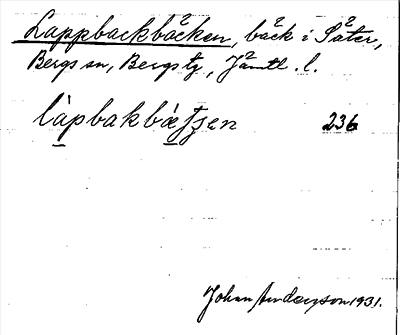 Lappbackbäcken, bäck i Säter,
Bergs sn, Bergs tg, Jämtl. l.
làpbakbæ̀tʃen 236
Johan Anderson 1931.